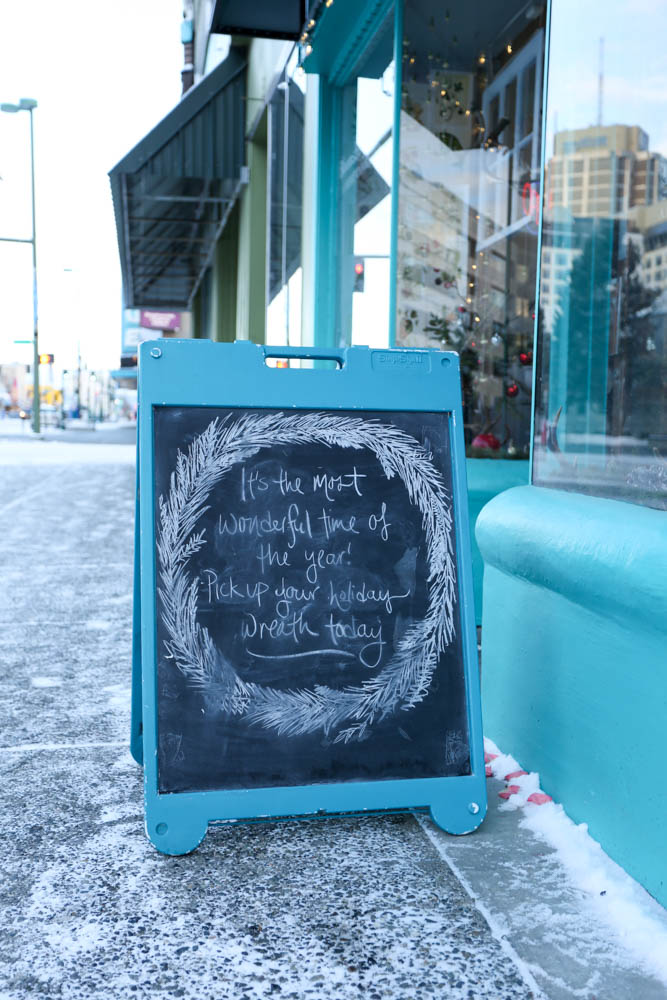 It's the most
wonderful time of
the year!
Pick up your holiday
wreath today